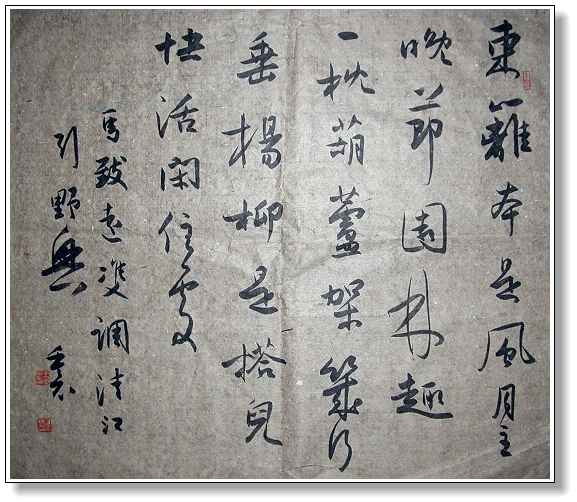 東籬本是風月主
晚節園林趣
一枕葫蘆架幾行
垂楊柳是搭兒
快活閑住處
馬致遠雙調清江
引野興